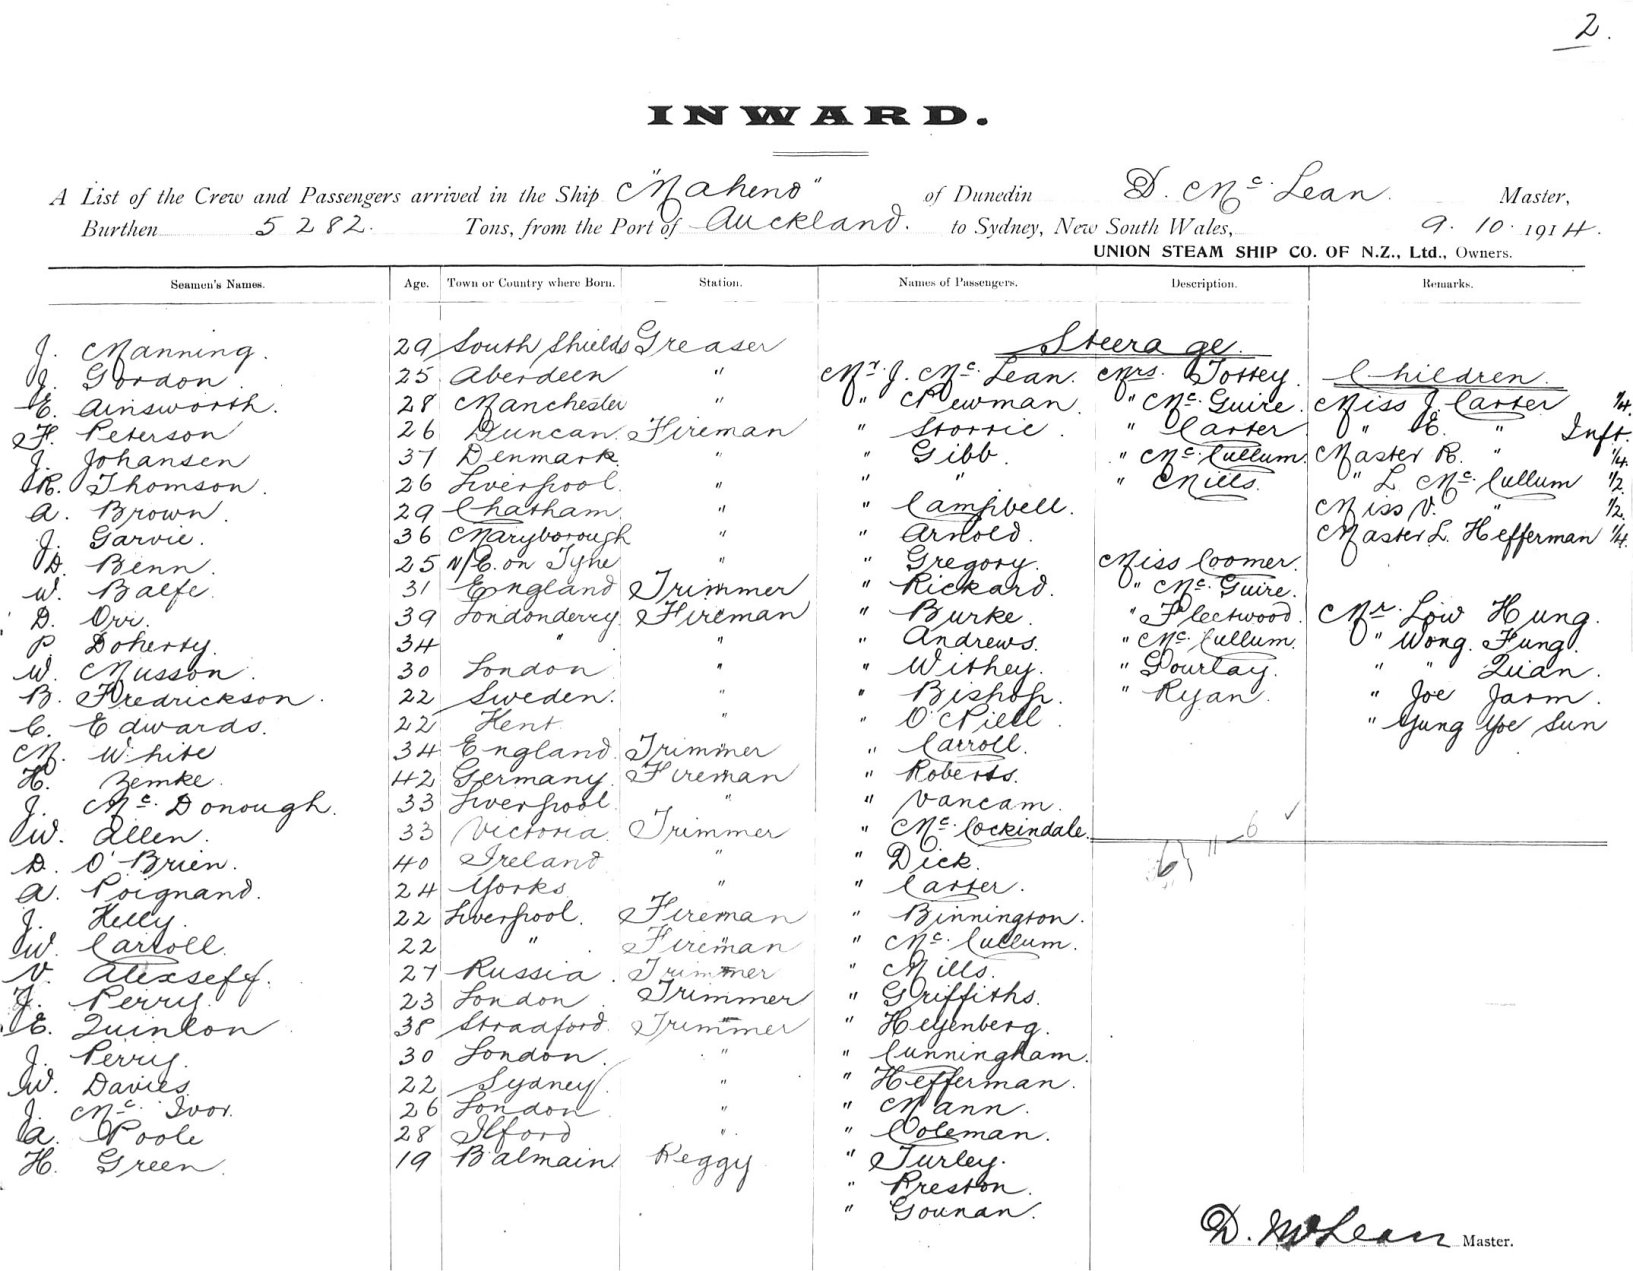 2.
INWARD.
A List of the Crew and Passengers arrived in the Ship "Maheno" of Dunedin D. McLean. Master,
Burthen 5282. Tons, from the Port of Auckland. to Sydney, New South Wales, 9. 10. 1914.
UNION STEAM SHIP CO. OF N.Z., Ltd., Owners.
Seamen's Names. Age. Town or Country where Born. Station. Names of Passengers. Description. Remarks.
Steerage.
J. Manning. 29 South Shields Greaser
J. Gordon. 25 Aberdeen " Mr. J. McLean. Mrs. Tottey. Children.
E. Ainsworth. 28 Manchester " " Newman. " McGuire. Miss J. Carter 1/4.
F. Peterson 26 Duncan. Fireman " Storrie. " Carter " E. " Inft.
J. Johansen 37 Denmark. " " Gibb. " McCullum. Master R. " 1/4.
R. Thomson. 26 Liverpool. " " " " Mills. " L McCullum 1/2
A. Brown. 29 Chatham. " " Campbell. Miss V. " 1/2.
J. Garvie. 36 Maryborough " " Arnold. Master L. Hefferman 1/4.
D. Benn. 25 N/C. on Tyne " " Gregory. Miss Coomer.
W. Balfe. 31 England Trimmer " Rickard. " McGuire.
D. Orr. 39 Londonderry Fireman " Burke. " Fleetwood. Mr. Low Hung.
P. Doherty. 34 " " " Andrews. " McCullum. " Wong. Fung.
W. Musson. 30 London " " Withey. " Gourlay. " " Quan.
B. Fredrickson. 22 Sweden. " " Bishop. " Ryan. " Joe Jarm.
C. Edwards. 22 Kent " " O'Niell. " Yung Yoe Sun
M. White 34 England. Trimmer " Carroll.
H. Zemke. 42 Germany. Fireman " Roberts.
J. McDonough. 33 Liverpool " " Vancam.
W. Allen. 33 Victoria. Trimmer " McCockindale. 6
D. O'Brien. 40 Ireland " " Dick.
A. Poignand. 24 Yorks " " Carter.
J. Kelly. 22 Liverpool. Fireman " Binnington.
W. Carroll. 22 " Fireman " McCullum.
V. Alexseff. 27 Russia. Trimmer " Mills.
J. Perry. 23 London Trimmer " Griffiths.
E. Quinlon 38 Stradford. Trimmer " Heyenberg.
J. Perry. 30 London. " " Cunningham.
W. Davies. 22 Sydney. " " Hefferman.
J. McIvor. 26 London " " Mann.
A. Poole 28 Ilford " " Coleman.
H. Green. 19 Balmain. Peggy " Turley.
" Preston.
" Gounan.
D. McLean Master.